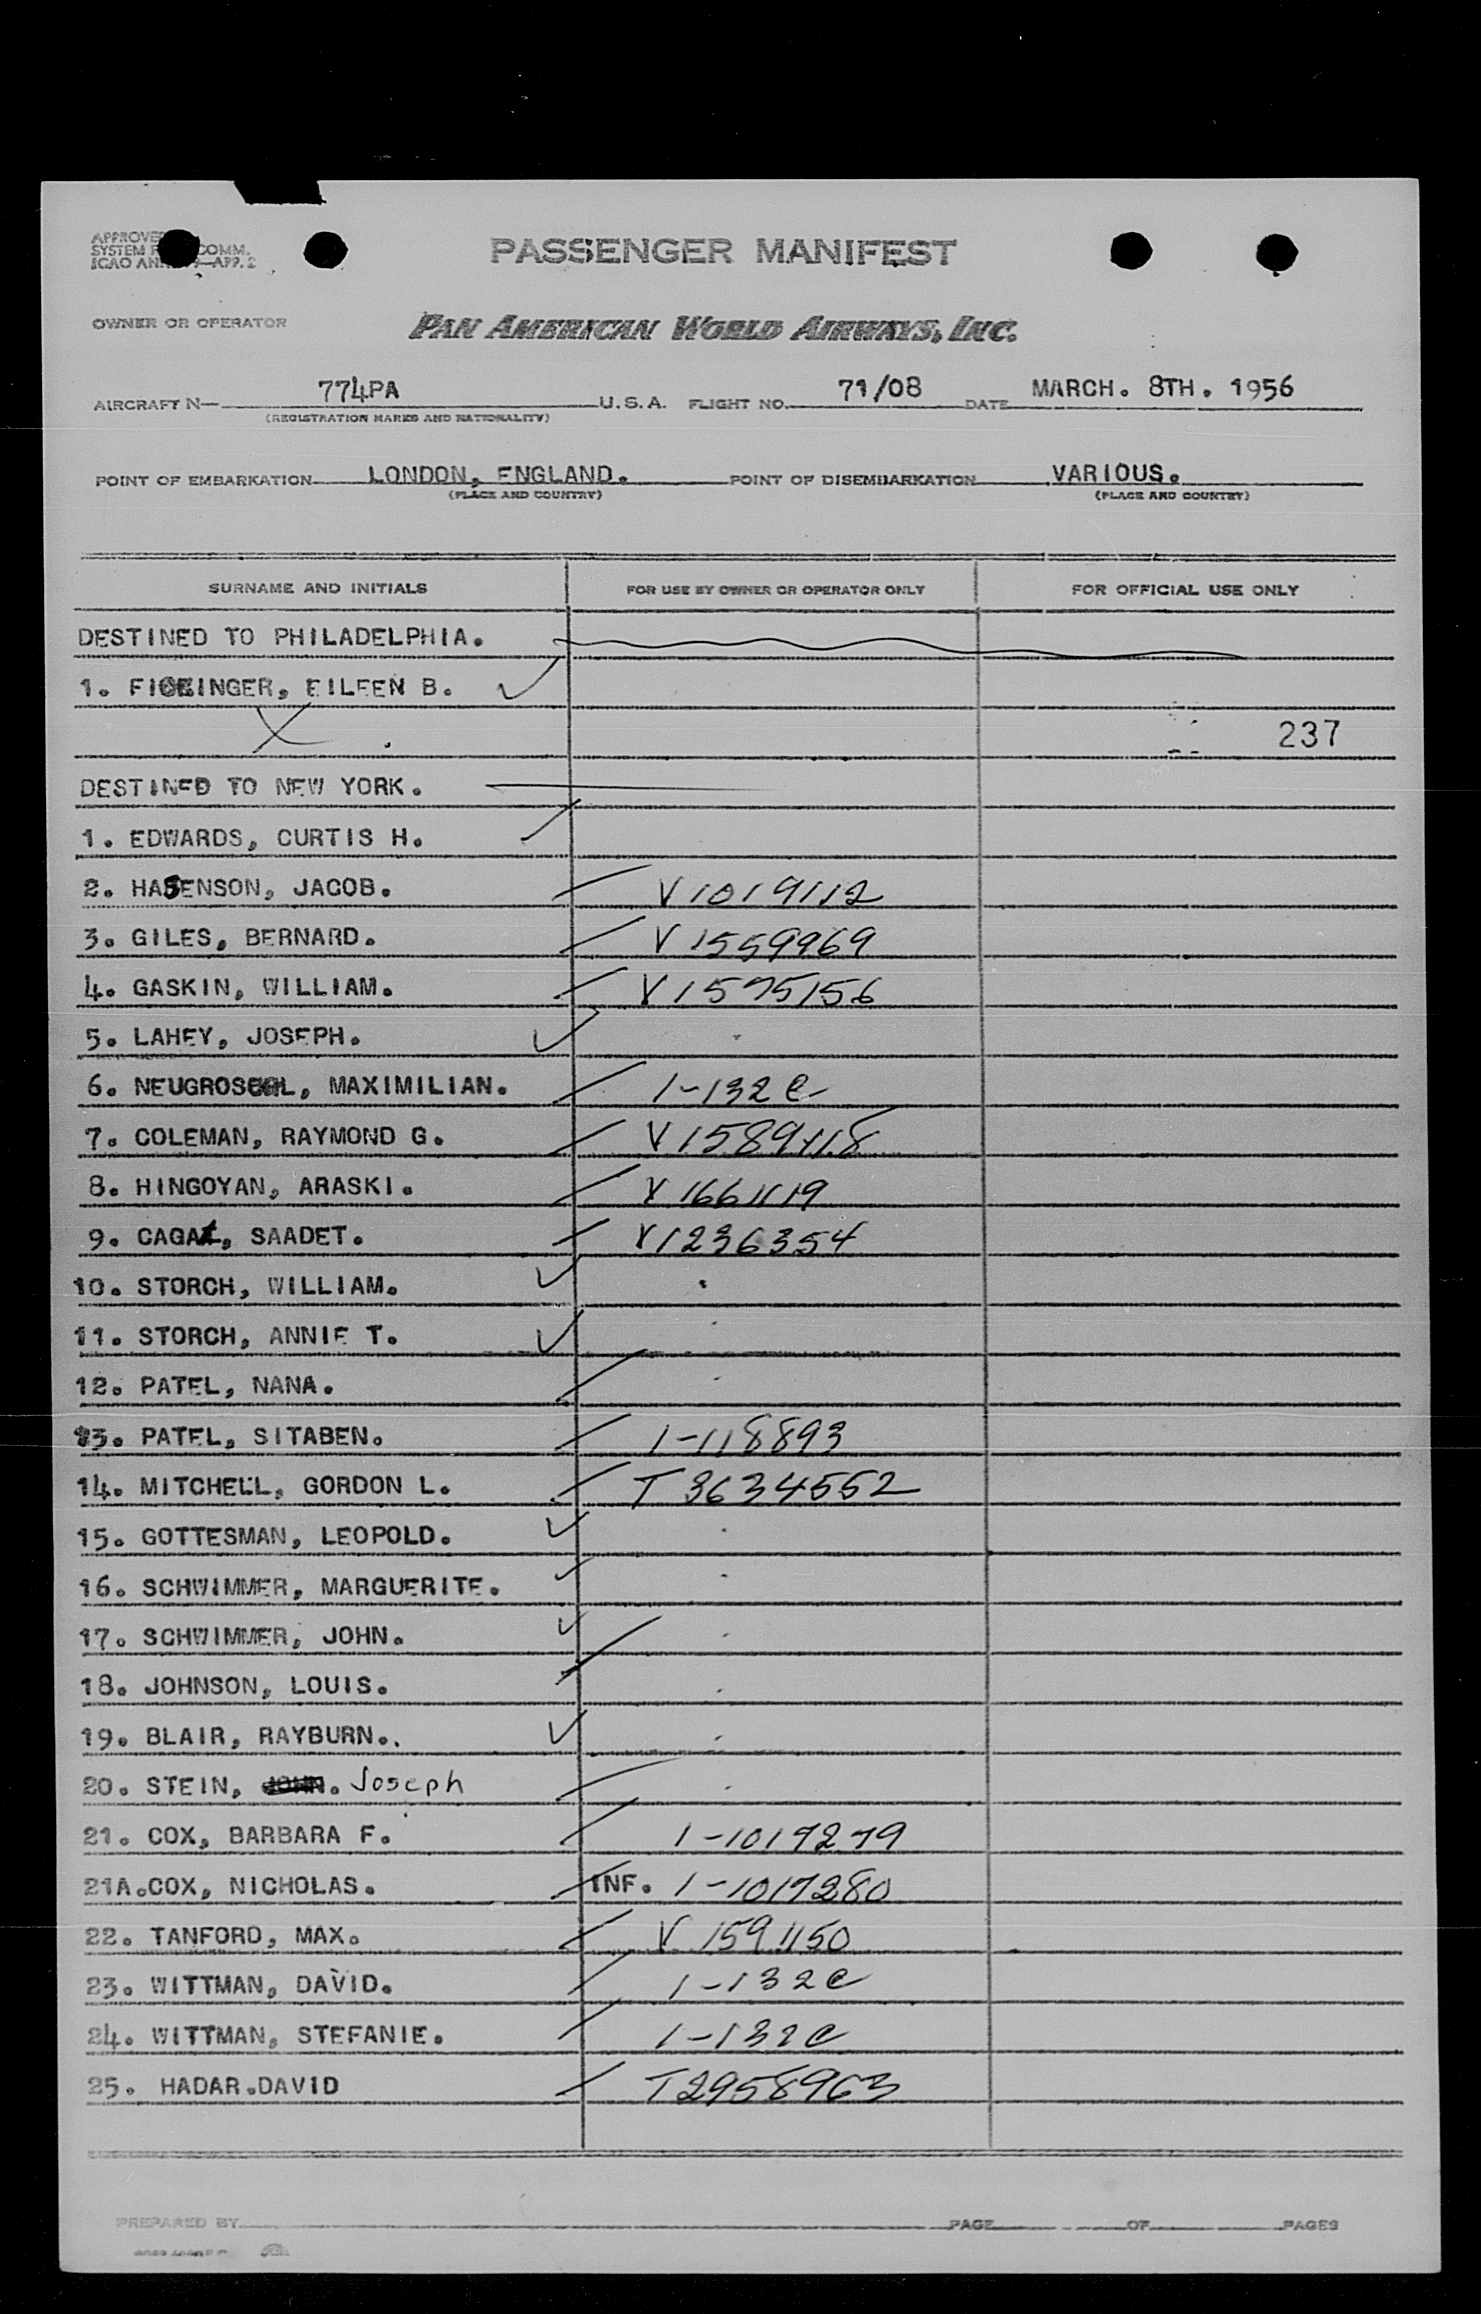 PASSENGER MANIFEST
OWNER OR OPERATOR PAN AMERICAN WORLD AIRWAYS, INC.
AIRCRAFT N— 774PA U.S.A. FLIGHT NO. 71/08 DATE MARCH. 8TH. 1956
(REGISTRATION MARKS AND NATIONALITY)
POINT OF EMBARKATION LONDON, ENGLAND. POINT OF DISEMBARKATION VARIOUS.
(PLACE AND COUNTRY) (PLACE AND COUNTRY)
SURNAME AND INITIALS FOR USE BY OWNER OR OPERATOR ONLY FOR OFFICIAL USE ONLY
DESTINED TO PHILADELPHIA.
1. EILEEN B.
237
DESTINED TO NEW YORK.
1. EDWARDS, CURTIS H.
2. HASENSON, JACOB. V1019112
3. GILES, BERNARD. V1559969
4. GASKIN, WILLIAM. V1575156
5. LAHEY, JOSEPH.
6. MAXIMILIAN. 1-132 C
7. COLEMAN, RAYMOND G.
8. HINGOYAN, ARASKI.
9. SAADET. V1236354
10. STORCH, WILLIAM.
11. STORCH, ANNIE T.
12. PATEL, NANA.
13. PATEL, SITABEN. 1-118893
14. MITCHELL, GORDON L. T 3634552
15. GOTTESMAN, LEOPOLD.
16. SCHWIMMER, MARGUERITE.
17. SCHWIMMER, JOHN.
18. JOHNSON, LOUIS.
19. BLAIR, RAYBURN..
20. STEIN, Joseph
21. COX, BARBARA F. 1-1017279
21A.COX, NICHOLAS. INF. 1-1017280
22. TANFORD, MAX. V 1591150
23. WITTMAN, DAVID. 1-132C
24. WITTMAN, STEFANIE. 1-132C
25. HADAR.DAVID T2958963
PREPARED BY PAGE OF PAGES